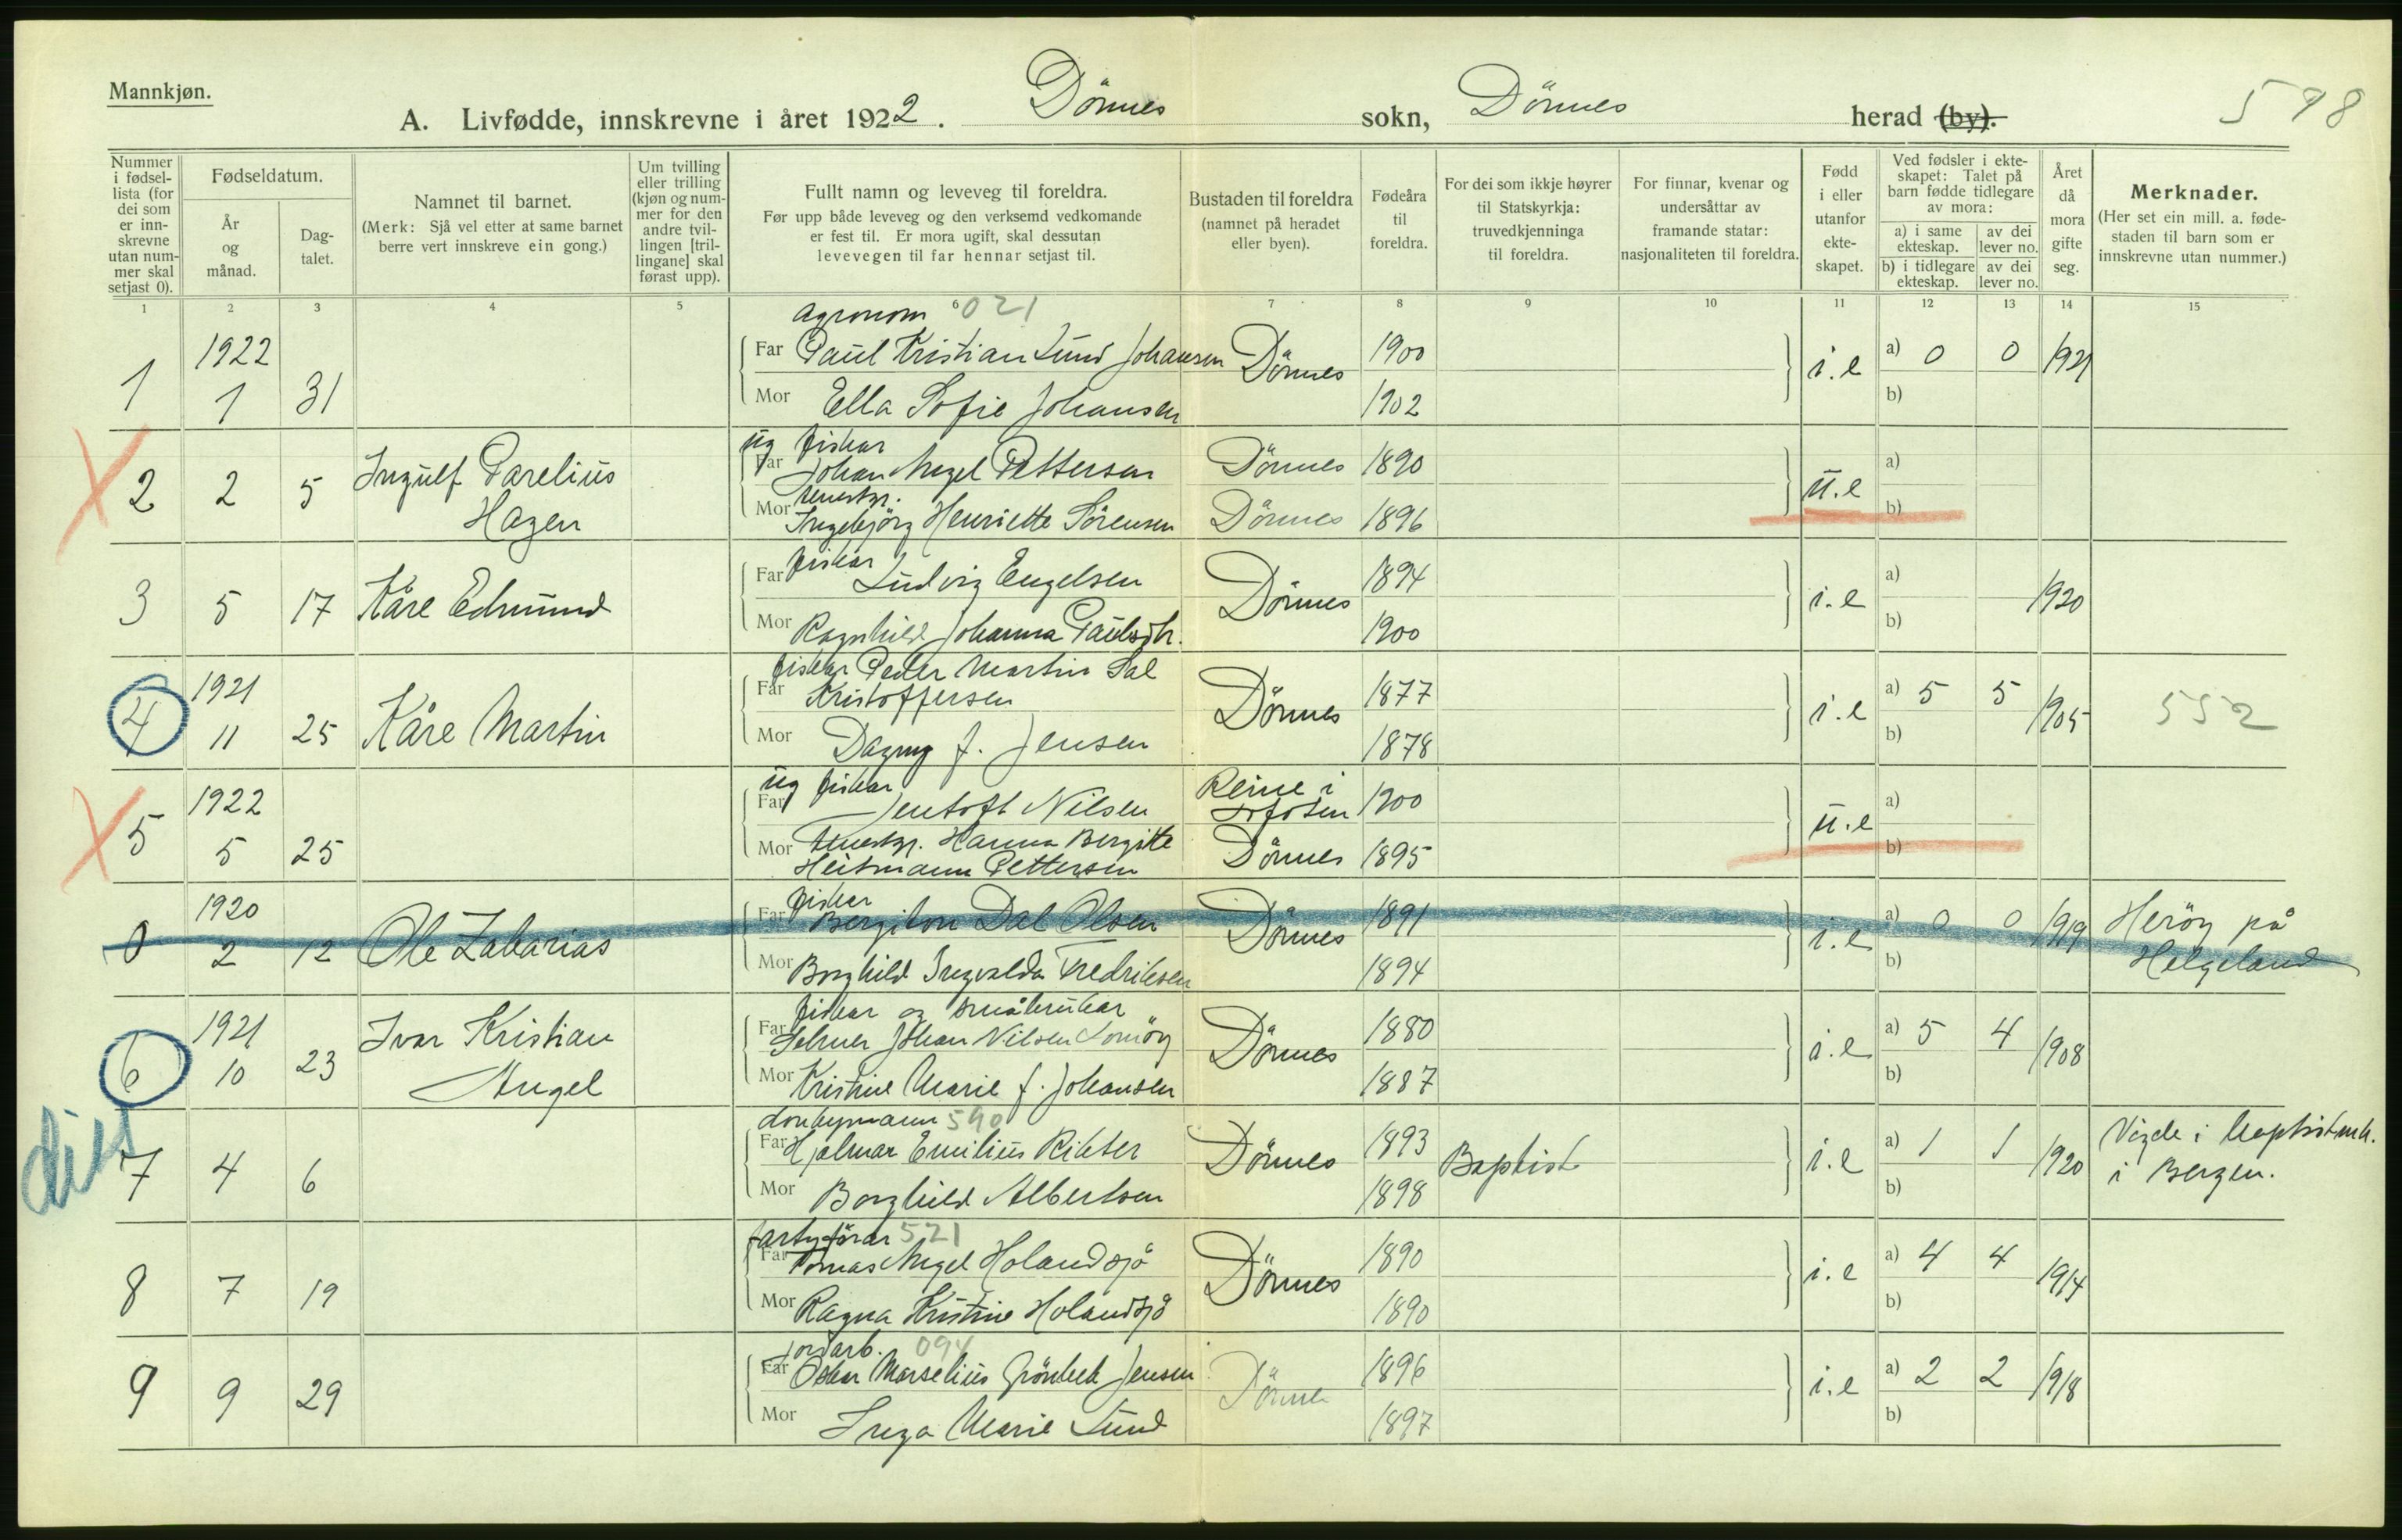 Mannkjøn.
A. Livfødde, innskrevne i året 1922. Dönnes sokn, Dönnes herad (by).
598
Nummer i fødsel-lista (for dei som er inn-skrevne utan num-mer skal setjast 0).
Fødseldatum.
År og månad.
Dag-talet.
Namnet til barnet.
(Merk: Sjå vel etter at same barnet berre vert innskreve ein gong.)
Um tvilling eller trilling (kjøn og num-mer for den andre tvil-lingen [tril-lingane] skal førast upp).
Fullt namn og leveveg til foreldra.
Før upp både leveveg og den verksemd vedkomande er fest til. Er mora ugift, skal dessutan levevegen til far hennar setjast til.
Bustaden til foreldra (namnet på heradet eller byen).
Fødeåra til foreldra.
For dei som ikkje høyrer til Statskyrkja: truvedkjenninga til foreldra.
For finnar, kvenar og undersåttar av framande statar: nasjonaliteten til foreldra.
Fødd i eller utanfor ekte-skapet.
Ved fødsler i ekte-skapet: Talet på barn fødde tidlegare av mora:
a) i same ekteskap. av dei lever no.
b) i tidlegare ekteskap. av dei lever no.
Året då mora gifte seg.
Merknader.
(Her set ein mill. a. føde-staden til barn som er innskrevne utan nummer.)
1 2 3 4 5 6 7 8 9 10 11 12 13 14 15
agronom 021
1 1922 1 31 Far Paul Kristian Lund Johansen Dönnes 1900 i.e a) 0 0 1921
Mor Ella Sofie Johansen 1902 b)
ug fiskar
2 2 5 Ingulf Parelius Hagen Far Johan Angel Pettersen Dönnes 1890 u.e a)
tenestgj.
Mor Ingebjörg Henriette Sörensen Dönnes 1896 b)
fiskar
3 5 17 Kåre Edmund Far Ludvig Engelsen Dönnes 1894 i.e a) 1920
Mor Ragnhild Johanna Paulsdtr. 1900 b)
fiskar Peder Martin Sal
4 1921 11 25 Kåre Martin Far Kristoffersen Dönnes 1877 i.e a) 5 5 1905 552
Mor Dagny f. Jensen 1878 b)
ug fiskar
5 1922 5 25 Far Jentoft Nilsen Reine i Lofoten 1900 u.e a)
Mor tenestgj. Hanna Bergitte
Heitmann Pettersen Dönnes 1895 b)
fiskar
0 1920 2 12 Ole Zakarias Far Bergiton Dal Olsen Dönnes 1891 i.e a) 0 0 1919 Heröy på Helgeland
Mor Borghild Ingvalda Fredriksen 1894 b)
fiskar og småbrukar
6 1921 10 23 Ivar Kristian Angel Far Selmer Johan Nilsen Lomöy Dönnes 1880 i.e a) 5 4 1908
Mor Kristine Marie f. Johansen 1887 b)
donkeymann 590
7 4 6 Far Hjalmar Emilius Rikter Dönnes 1893 Baptist i.e a) 1 1 1920 Vigde i baptistmh. i Bergen.
Mor Borghild Albertsen 1898 b)
fartyförar 521
8 7 19 Far Tomas Angel Holandsjö Dönnes 1890 i.e a) 4 4 1914
Mor Ragna Kristine Holandsjö 1890 b)
jordarb. 094
9 9 29 Far Oskar Marselius Grönbek Jensen Dönnes 1896 i.e a) 2 2 1918
Mor Inga Marie Lund 1897 b)